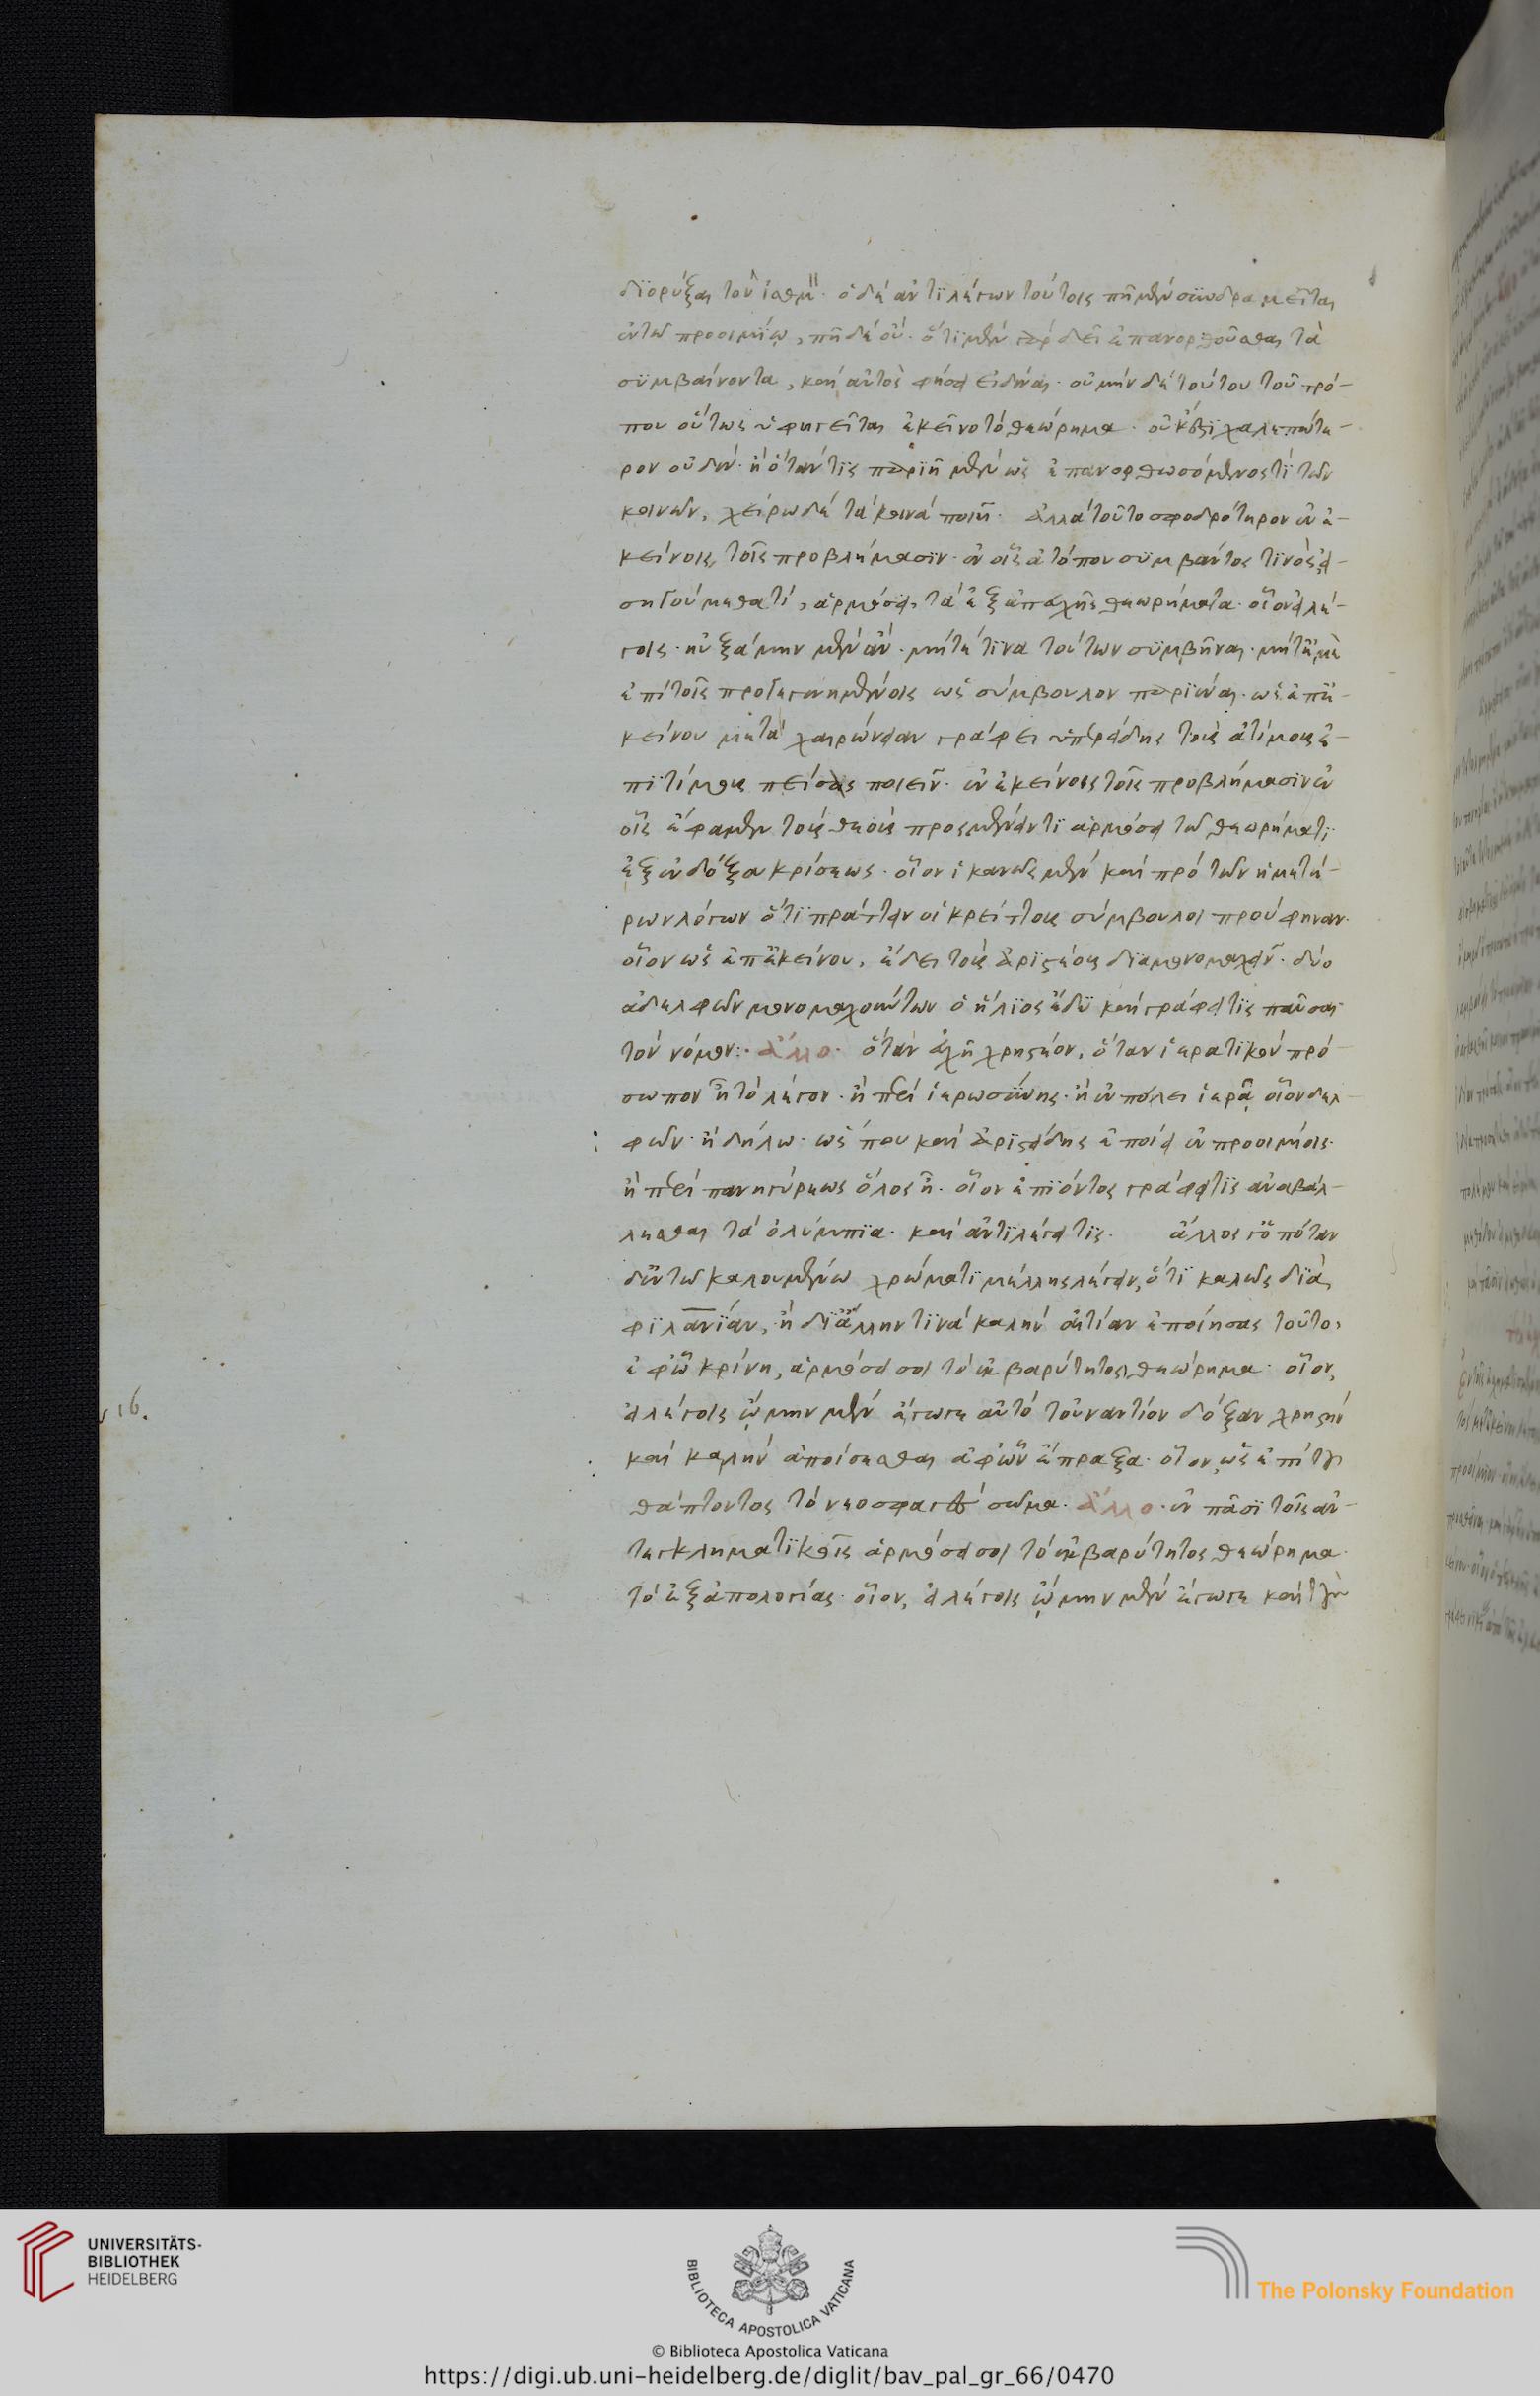 διορύξαι τὸν ἰσθμόν· ὁ δὲ ἀντιλέγων τούτοις πῆ μὲν συνδραμεῖται
ἐν τῶ προοιμίω, πῆ δὲ οὔ· ὅτι μὲν γὰρ δεῖ ἐπανορθοῦσθαι τὰ
συμβαίνοντα, καὶ αὐτὸς φήσει εἰδέναι· οὐ μὴν δὲ τούτου τοῦ τρό-
που οὕτως ὑφηγεῖται ἐκεῖνο τὸ θεώρημα· οὐκ ἔστι χαλεπώτε-
ρον οὐδὲν· ἢ ὅταν τις παρίῃ μὲν ὡς ἐπανορθωσόμενος τὶ τῶν
κοινῶν, χείρω δὲ τὰ κοινὰ ποιῆ· ἀλλὰ τοῦτο σφοδρότερον ἐν ἐ-
κείνοις τοῖς προβλήμασιν· ἐν οἷς ἀτόπου συμβάντος τινὸς εἰ-
σηγούμεθα τί, ἁρμόσει τὰ ἐξ ἀπευχῆς θεωρήματα· οἷον εἰ λέ-
γοις· ηὐξάμην μὲν ἂν· μήτε τινα τούτων συμβῆναι· μήτε ἐμὲ
ἐπὶ τοῖς προγεγενημένοις ὡς σύμβουλον παριέναι· ὡς ἐπ' ἐ-
κείνου μετὰ χαιρώνειαν γράφει ὑπερείδης τοὺς ἀτίμους ἐ-
πιτίμους ποιεῖν· ἐν ἐκείνοις τοῖς προβλήμασιν ἐν
οἷς ἔφαμεν τοὺς θεοὺς προσμένειν τι ἁρμόσει τῶ θεωρήματι
ἐξ ἐνδόξου κρίσεως· οἷον ἱκανῶς μὲν καὶ πρὸ τῶν ἡμετέ-
ρων λόγων ὅτι πράττειν οἱ κρείττους σύμβουλοι προύφηναν·
οἷον ὡς ἐπ' ἐκείνου, ἔδει τοὺς ἀριστέους διαμονομαχεῖν· δύο
ἀδελφῶν μονομαχούντων ὁ ἥλιος ἔδυ καὶ γράφει τις παῦσαι
τὸν νόμον:· ἄλλο· ὅταν ἔχῃ χρησμὸν, ὅταν ἱερατικὸν πρό-
σωπον ᾖ τὸ λέγον· ἢ περὶ ἱερωσύνης· ἢ ἐν πόλει ἱερᾷ οἷον δελ-
φῶν· ἢ δήλω· ὡς που καὶ ἀριστείδης ἐποίει ἐν προοιμίοις·
ἢ περὶ πανηγύρεως ὅλος ᾖ· οἷον ἐπιόντος γράφει τις ἀναβάλ-
λεσθαι τὰ ὀλύμπια· καὶ ἀντιλέγει τις· ἄλλος γ' ὁπόταν
δ' ἐν τῶ καλουμένω χρώματι μέλλῃς λέγειν, ὅτι καλῶς διὰ
φιλανίαν, ἢ δι' ἄλλην τινὰ καλὴν αἰτίαν ἐποίησας τοῦτο,
ἐφ' ᾧ κρίνῃ, ἁρμόσει σοι τὸ ἐκ βαρύτητος θεώρημα· οἷον,
εἰ λέγοις ᾤμην μὲν ἔγωγε αὐτὸ τοὐναντίον δόξαν χρηστὴν
καὶ καλὴν ἀποίσεσθαι ἀφ' ὧν ἔπραξα· οἷον ὡς ἐπὶ τοῦ
θάπτοντος τὸ νεοσφαγὲς σῶμα· ἄλλο· ἐν πᾶσι τοῖς ἀν-
τεγκληματικοῖς ἁρμόσει σοι τὸ ἐκ βαρύτητος θεώρημα·
τὸ ἐξ ἀπολογίας· οἷον, εἰ λέγοις ᾤμην μὲν ἔγωγε καὶ τὴν
16.
UNIVERSITÄTS-
BIBLIOTHEK
HEIDELBERG
BIBLIOTECA APOSTOLICA VATICANA
© Biblioteca Apostolica Vaticana
The Polonsky Foundation
https://digi.ub.uni-heidelberg.de/diglit/bav_pal_gr_66/0470